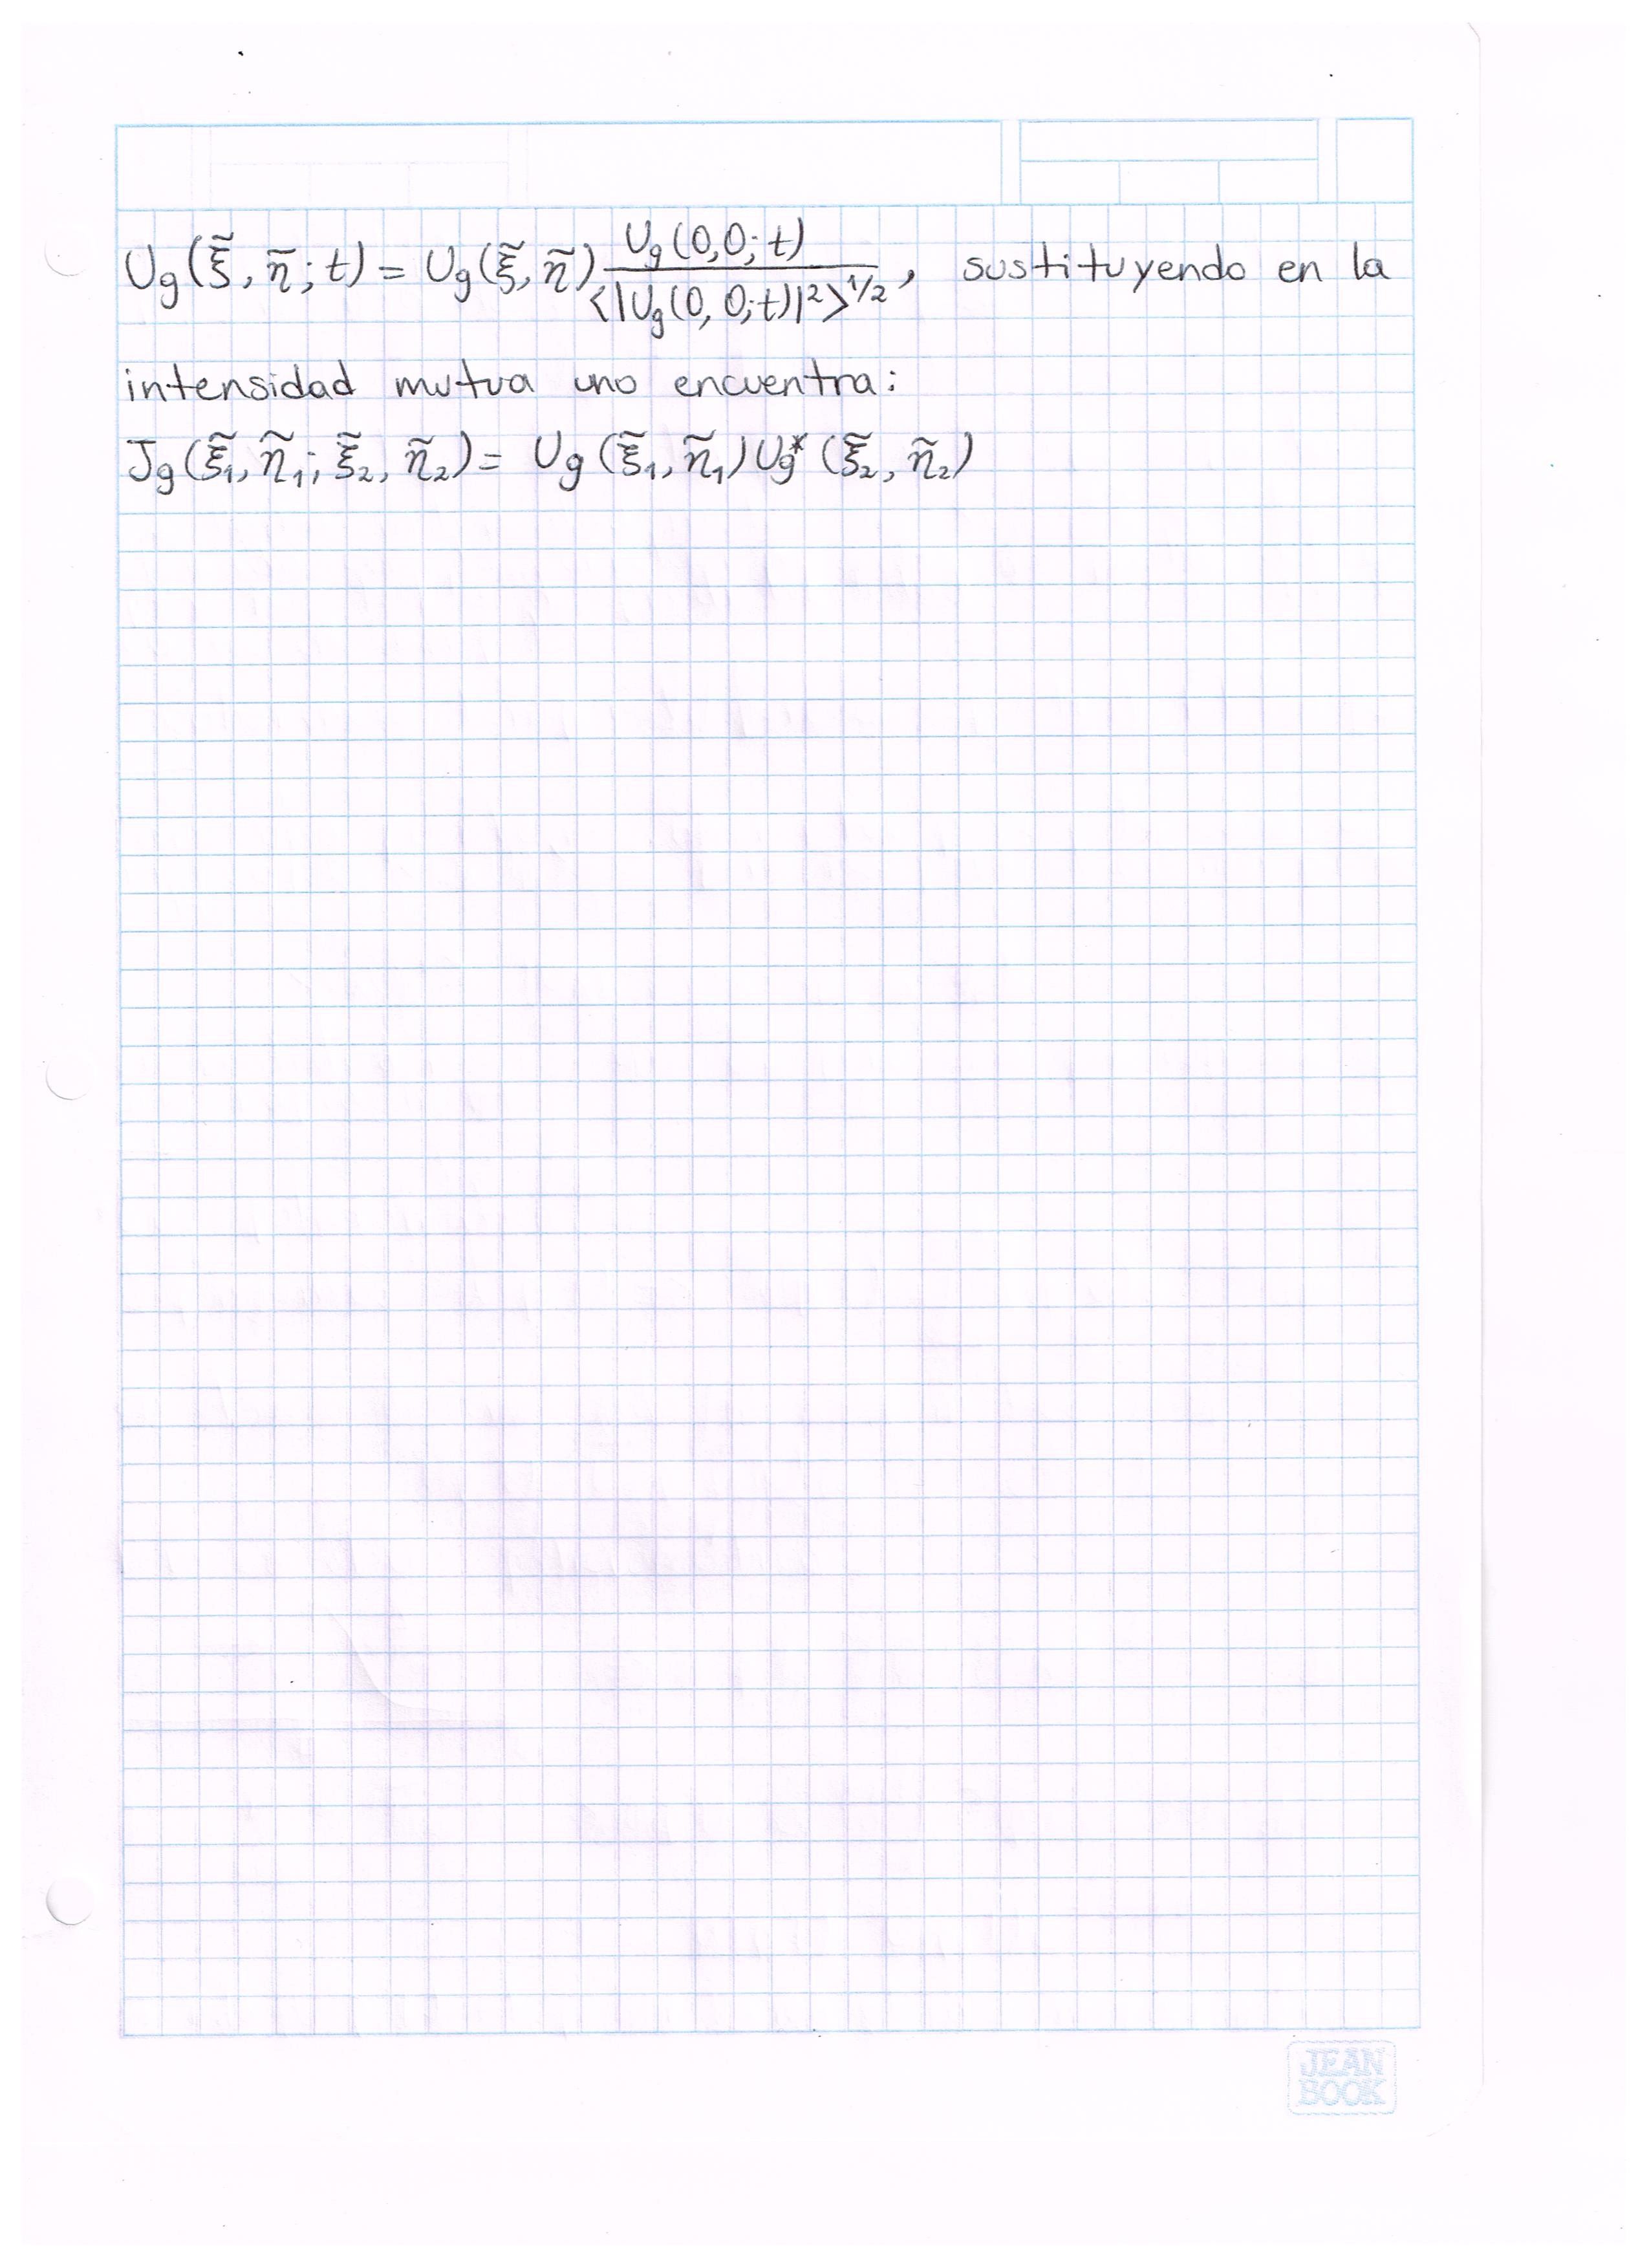 Ug(ξ̃, η̃; t) = Ug(ξ̃, η̃) Ug(0,0; t) / <|Ug(0, 0; t)|²>^1/2, sustituyendo en la
intensidad mutua uno encuentra:
Jg(ξ̃₁, η̃₁; ξ̃₂, η̃₂) = Ug(ξ̃₁, η̃₁)Ug*(ξ̃₂, η̃₂)
JEAN
BOOK